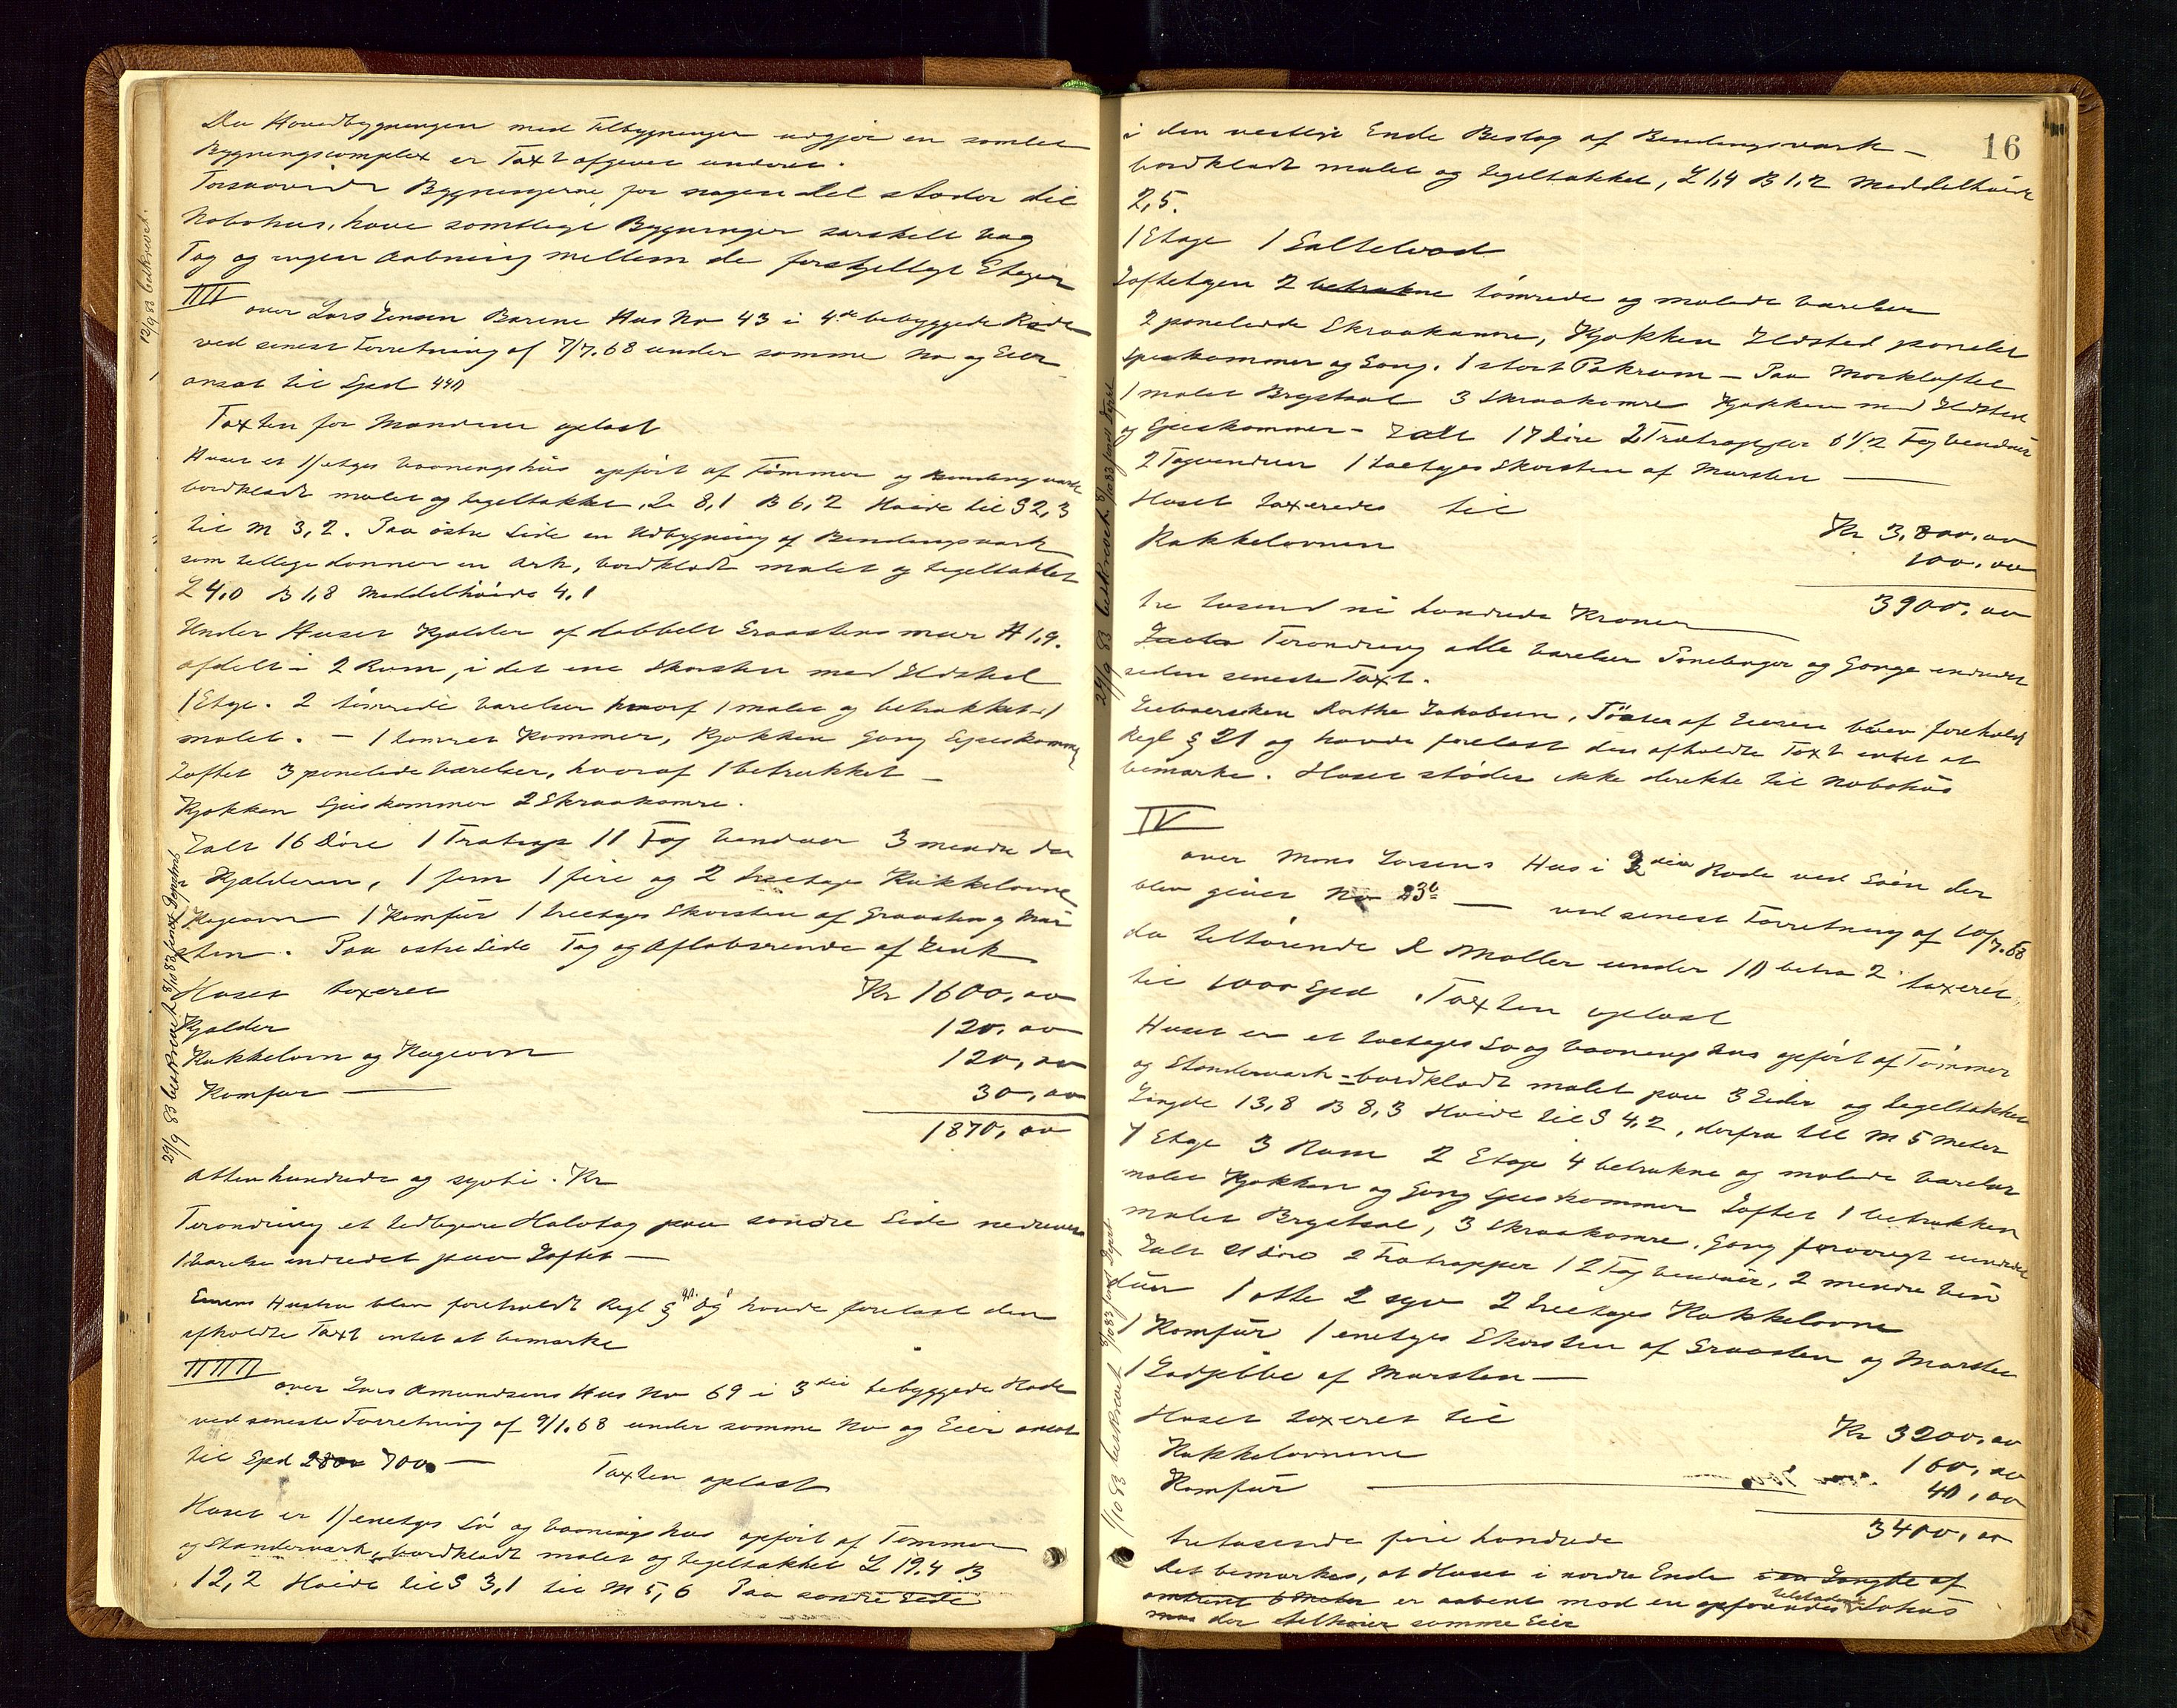 Da Hovedbygningen med Tilbygninger udgjør en samlet
Bygningscomplex er Taxt afgivet under et.
Forsaavidt Bygningerne for nogen Del støder til
Nabohus, have samtlege Bygninger særskilt Væg
Tag og ingen Aabning mellem de forskjellige Etager
III
over Lars Jensen Barene Hus No 43 i 4de bebyggede Rode
ved senest Forretning af 7/7.68 under samme No og Eier
ansat til Spd 440
Taxten for Mændene oplæst
Huset et 1/ etages Vaaningshus opført af Tømmer og Bindingsværk
bordklædt malet og tegeltækket, L 8,1 B 6,2 Høide til S 2,3
til M 3,2. Paa østre Side en Udbygning af Bindingsværk
som tillige danner en Ark, bordklædt malet og tegeltækket
L 4,0 B 1,8 Meddelhøide 4,1
Under Huset Kjælder af dobbelt Graastensmur H 1,9.
afdelt i 2 Rum, i det ene Skorsten med Ildsted
1 Etage. 2 tømrede Værelser hvoraf 1 malet og betrækket 1
malet. – 1 tømret Kammer, Kjøkken Gang Spiskammer
Loftet 3 panelede Værelser, hvoraf 1 betrukket –
Kjøkken Spiskammer 2 Skraakamre.
Ialt 16 Døre 1 Trætrap 11 Fag Vinduer 3 mindre do
i Kjælderen, 1 fem 1 fire og 2 treetages Kakkelovne
1 Bageovn 1 Komfur 1 treetages Skorsten af Graasten og Mur
sten. Paa østre Side Tag og Afløbsrende af Zink
Huset taxeret Kr 1600,00
Kjælder 120,00
Kakkelovn og Bageovn 120,00
Komfur — 30,00
1870,00
Atten hundrede og sytti. Kr
Forandring et tidligere Halvtag paa søndre Side nedrevet
1 Værelse indredet paa Loftet —
Eierens Hustru blev foreholdt Regl § 21. og havde forelæst den
afholdte Taxt intet at bemærke
III
over Lars Amundsens Hus No 69 i 3die bebyggede Rode
ved seneste Forretning af 9/1.68 under samme No og Eier ansat
til Spd 700 — Taxten oplæst
Huset er 1/ enetges Sø og Vaaningshus opført af Tømmer
og Standerværk, bordklædt malet og tegeltækket L 19.4 B
12,2 Høide til S 3,1 til M 5,6 Paa søndre Side
12/9 83 beskrevet.
29/9 83 beskrevet 8/10 83 send Dupl
16
i den vestlige Ende Beslag af Bindingsværk –
bordklædt malet og tegeltækket, L 1,4 B 1,2 Meddelhøide
2,5.
1 Etage 1 Saltebod
Loftetagen 2 betrukne tømrede og malede Værelser
2 panelede Skraakamre, Kjøkken Ildsted panelet
Spiskammer og Gang. 1 stort Pakrum – Paa Mørkloftet
1 malet Brystsal 3 Skraakamre Kjøkken med Ildsted
og Spiskammer – Ialt 17 Døre 2 Trætrapper 6 1/2 Fag Vinduer
2 Tagvinduer 1 toetages Skorsten af Mursten —
Huset taxeredes til Kr 3,800,00
Kakkelovnen 100,00
tre tusend ni hundrede Kroner — 3900,00
Forandring alle Værelser Panelinger og Gange indredet
siden seneste Taxt.
Dorthe Jakobsen, Søster af Eieren blev foreholdt
Regl § 21 og havde forelæst den afholdte Taxt intet at
bemærke. Huset støder ikke direkte til Nabohus
IV
over Mons Larsens Hus i 3die Rode ved Søen der
blev given No 23b — ved senest Forretning af 10/7.68
da tilhørende D Møller under 10 betra 2 taxeret
til 1000 Spd. Taxten oplæst
Huset er et toetages Sø og Vaaningshus opført af Tømmer
og Standerværk – bordklædt malet paa 3 Sider og tegeltækket
Længde 13,8 B 8,3 Høide til S 4,2, derfra til M 5 Meter
1 Etage 3 Rum 2 Etage 4 betrukne og malede Værelser
malet Kjøkken og Gang Spiskammer Loftet 1 betrukken
malet Brystsal, 3 Skraakamre. Gang forøvrigt uindredet
Ialt 21 Døre 2 Trætrapper 12 Fag Vinduer, 2 mindre Vin
duer 1 otte 2 syv 2 treetages Kakkelovne
1 Komfur 1 enetges Skorsten af Graasten og Mursten
1 af Mursten —
Huset taxeret til Kr 3200,00
Kakkelovnene 160,00
Komfur — 40,00
tretusende fire hundrede 3400,00
Det bemærkes, at Huset i nordre Ende i en Længde af
omtrent 6 Meter er aabent mod en tilstødende Søhus
der tilhører samme Eier
24/9 83 beskrevet 8/10 83 send Dupl
1/10 83 beskrevet 8/10 83 send Dupl